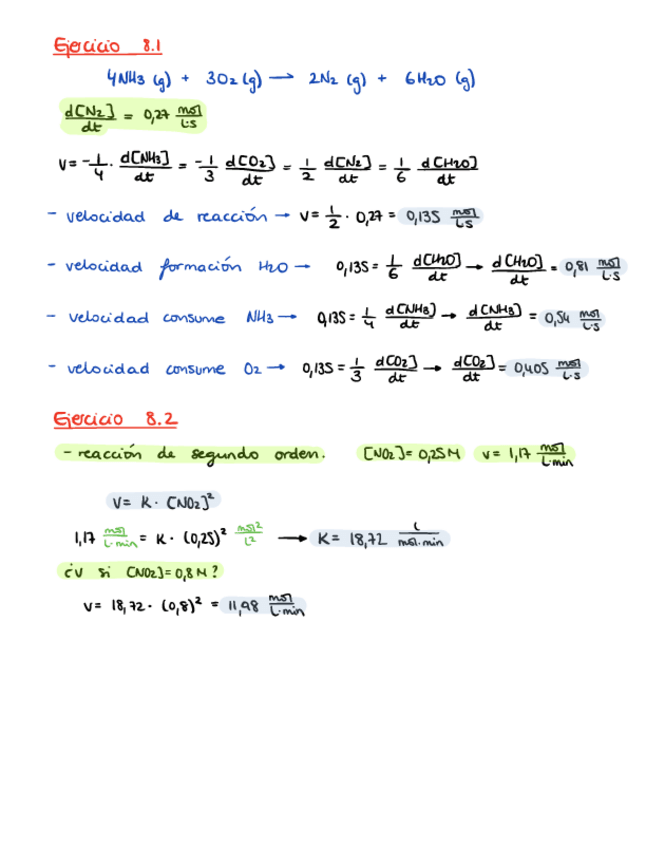 Ejercicio 8.1
4NH3 (g) + 3O2 (g) → 2N2 (g) + 6H2O (g)
d[N2]/dt = 0,27 mol/L·s
v = -1/4 · d[NH3]/dt = -1/3 d[O2]/dt = 1/2 d[N2]/dt = 1/6 d[H2O]/dt
- velocidad de reacción → v = 1/2 · 0,27 = 0,135 mol/L·s
- velocidad formación H2O → 0,135 = 1/6 d[H2O]/dt → d[H2O]/dt = 0,81 mol/L·s
- velocidad consume NH3 → 0,135 = 1/4 d[NH3]/dt → d[NH3]/dt = 0,54 mol/L·s
- velocidad consume O2 → 0,135 = 1/3 d[O2]/dt → d[O2]/dt = 0,405 mol/L·s
Ejercicio 8.2
- reacción de segundo orden. [NO2] = 0,25M v = 1,17 mol/L·min
v = K · [NO2]²
1,17 mol/L·min = K · (0,25)² mol²/L² → K = 18,72 L/mol·min
¿v si [NO2] = 0,8 M?
v = 18,72 · (0,8)² = 11,98 mol/L·min